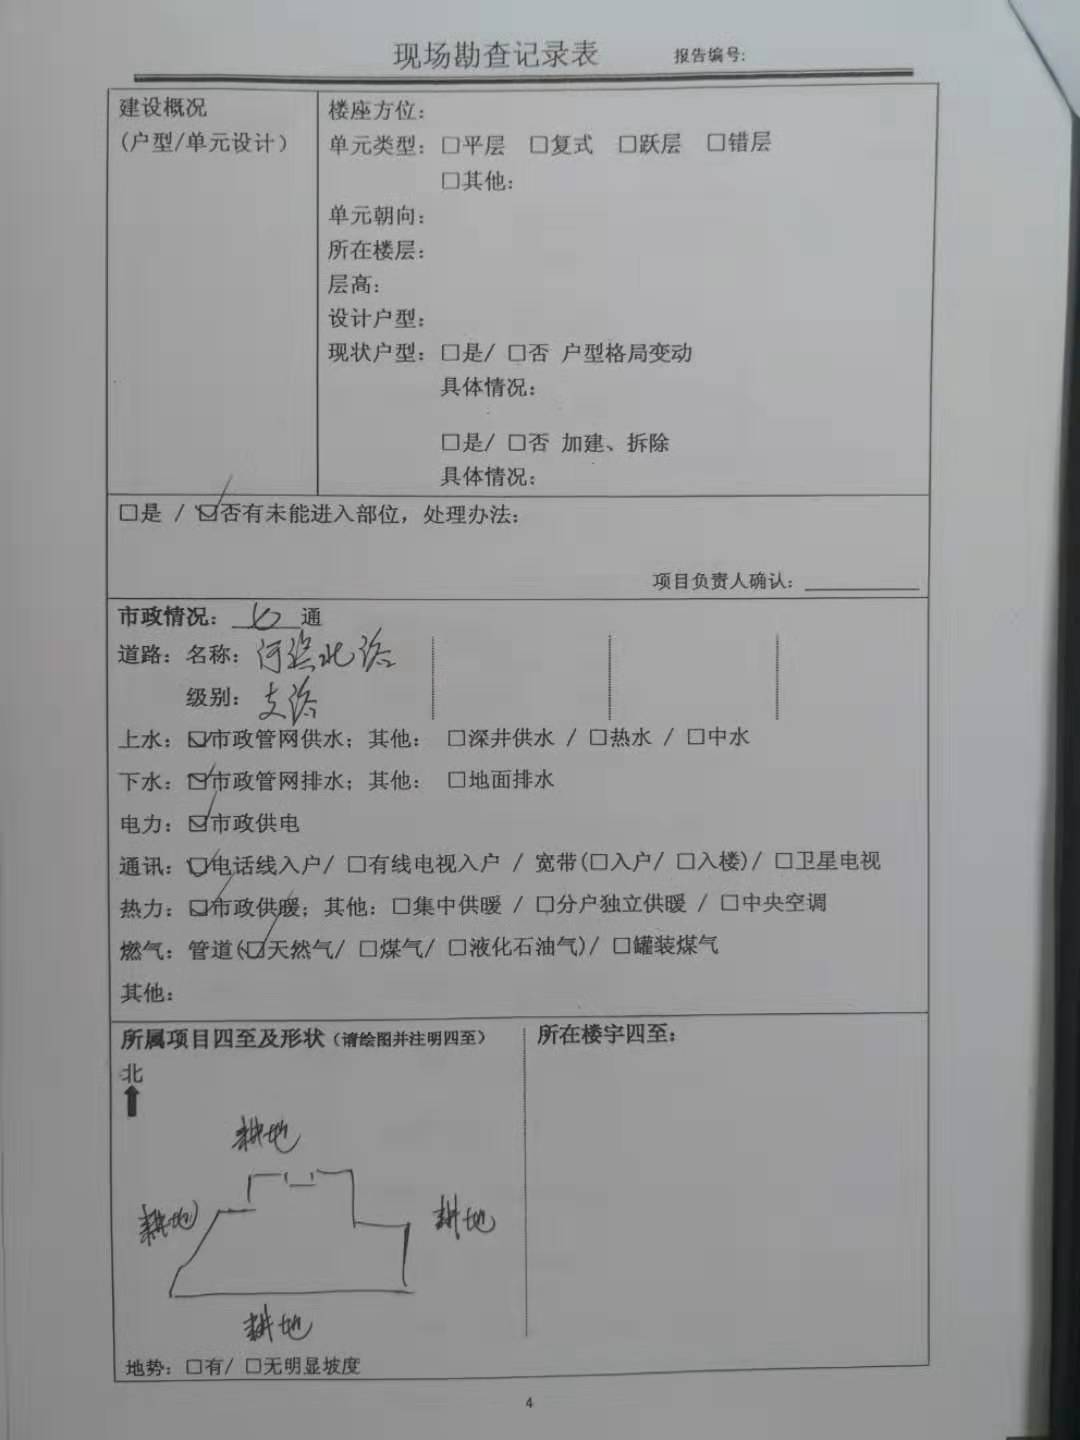 现场勘查记录表 报告编号:
建设概况
(户型/单元设计)
楼座方位:
单元类型: □平层 □复式 □跃层 □错层
□其他:
单元朝向:
所在楼层:
层高:
设计户型:
现状户型: □是/ □否 户型格局变动
具体情况:
□是/ □否 加建、拆除
具体情况:
□是 / ☑否有未能进入部位, 处理办法:
项目负责人确认:
市政情况: 七 通
道路: 名称: 河滨北路
级别: 支路
上水: ☑市政管网供水; 其他: □深井供水 / □热水 / □中水
下水: ☑市政管网排水; 其他: □地面排水
电力: ☑市政供电
通讯: ☑电话线入户/ □有线电视入户 / 宽带(□入户/ □入楼)/ □卫星电视
热力: ☑市政供暖; 其他: □集中供暖 / □分户独立供暖 / □中央空调
燃气: 管道(☑天然气/ □煤气/ □液化石油气)/ □罐装煤气
其他:
所属项目四至及形状(请绘图并注明四至)
北
耕地
耕地
耕地
耕地
地势: □有/ □无明显坡度
所在楼宇四至:
4